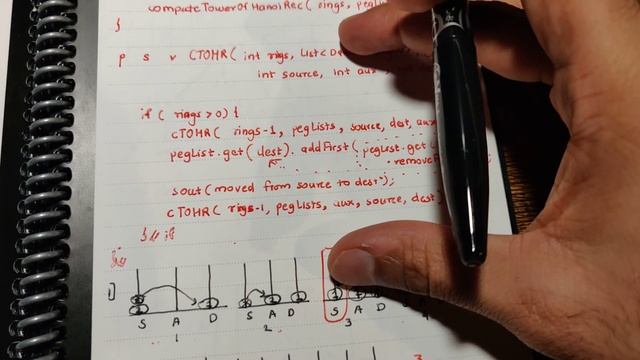 computeTowerOfHanoiRec( rings, pegLi
}
p s v CTOHR( int rigs, List<De
int source, int aux
if( rings>0) {
CTOHR( rings-1, pegLists, source, dest, aux
pegList.get(dest). addFirst( pegList.get
remove
sout(moved from source to dest");
CTOHR( rigs-1, pegLists, aux, source, dest
S A D S A D S A D
1 2 3